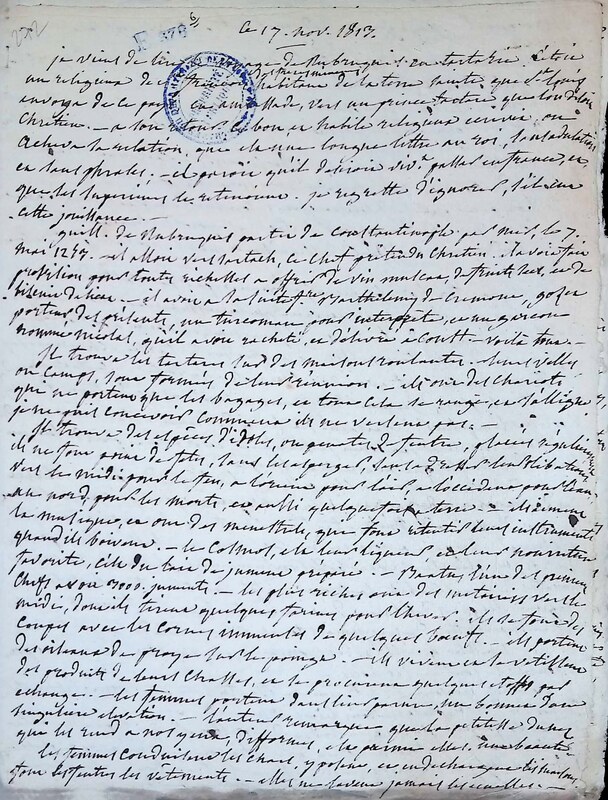 272
ce 17. nov. 1813.
je viens de lire voyage de Rubruquis en tartarie. C'etoit
un religieux de habitant de la terre sainte, que St. Louis
envoya de ce pays vers un prince tartare que l'on disoit
chretien. – a son retour ce bon et habile religieux ecrivit, ou
acheva sa relation, qui est une longue lettre au roi, sans adulation
et sans phrases. – il paroit qu'il desiroit passer en france, et
que ses superieurs le retinrent. je regrette d'ignorer s'il eut
cette jouissance. –
guill. de Rubruquis partit de constantinople par mer, le 7.
mai 1253. – il alloit vers Sartach, ce chef pretendu chretien. il avoit fait
provision pour toutes richesses a offrir de vin muscat, de fruits secs, et de
biscuit – il avoit a sa suite fr. Barthelemy de Cremone, gozet
porteur des présents, un turcoman pour interprete, et un garçon
nommé nicolas, qu'il avoit racheté, et delivré a Const. – voilà tout. –
Il trouva les tartares sur des maisons roulantes. – leurs villes
ou camps, sont formés de leur reunion. – ils ont des chariots
qui ne portent que les bagages, et tout cela se range, et s'alligne.
je ne puis concevoir comment ils ne versent pas. –
Il trouva des especes d'idoles, ou penates de feutre, placées
ils ne font point de fetes, sans les asperger, sans leurs libations
vers le midi pour le feu, a l'orient pour l'air, a l'occident pour l'eau,
au nord, pour les morts, et aussi quelquefois a terre. – ils aiment
la musique, et ont des menestrels, qui font retentir leurs instruments
quand ils boivent. – le Cosmos, est la leur liqueur, et leur nourriture
favorite, c'est du lait de jument preparé. – Baatu, l'un des premiers
chefs avoit 3000. juments. – les plus riches ont des metairies vers le
midi, dont ils tirent quelques farines pour l'hiver. ils se font des
coupes avec les cornes immenses de quelques boeufs. – ils portent
des oiseaux de proye sur le poing. – ils vivent et se vetissent
des produits de leurs chasses, et se procurent quelques etoffes par
echange. – les femmes portent dans leur parure, un bonnet d'une
singuliere elevation. – l'auteur remarque que la petitesse du nez
qui les rend a nos yeux, difformes, est parmi elles, une beauté. –
les femmes conduisent les chars, y posent, et en dechargent les maisons,
font les feutres les vetements. – elles ne lavent jamais les ecuelles. –